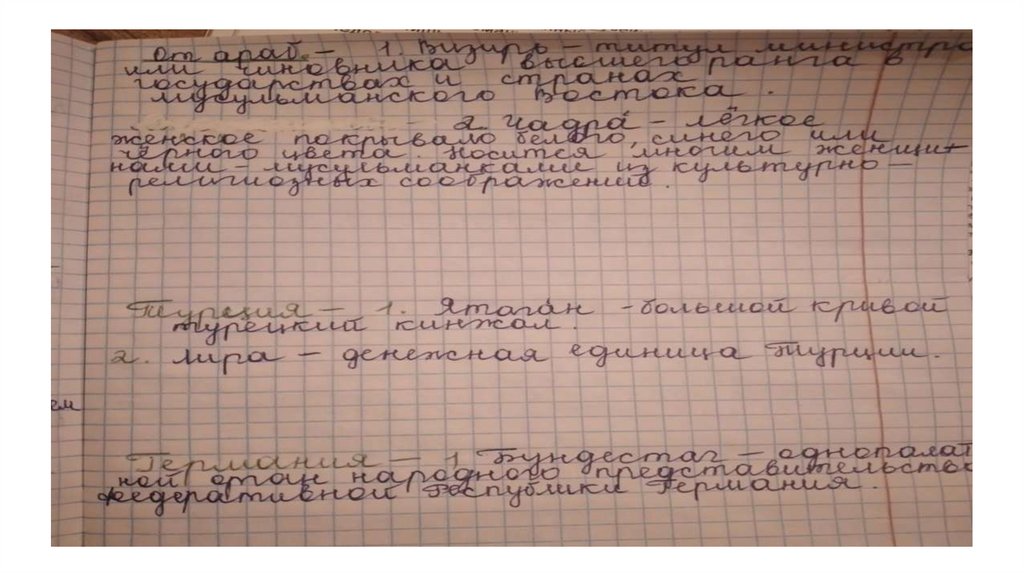 от араб. – 1. Визирь – титул министра
или чиновника высшего ранга в
государствах и странах
мусульманского Востока.
– 2 Чадра́ – лёгкое
женское покрывало белого, синего или
чёрного цвета. Носится многим женщи-
нами – мусульманками из культурно –
религиозных соображений.
Турция – 1. Ятага́н – большой кривой
турецкий кинжал.
2. Лира – денежная единица Турции.
ем
Германия – 1 Бундестаг – однопалат
ной орган народного представительство
федеративной Республики Германия.